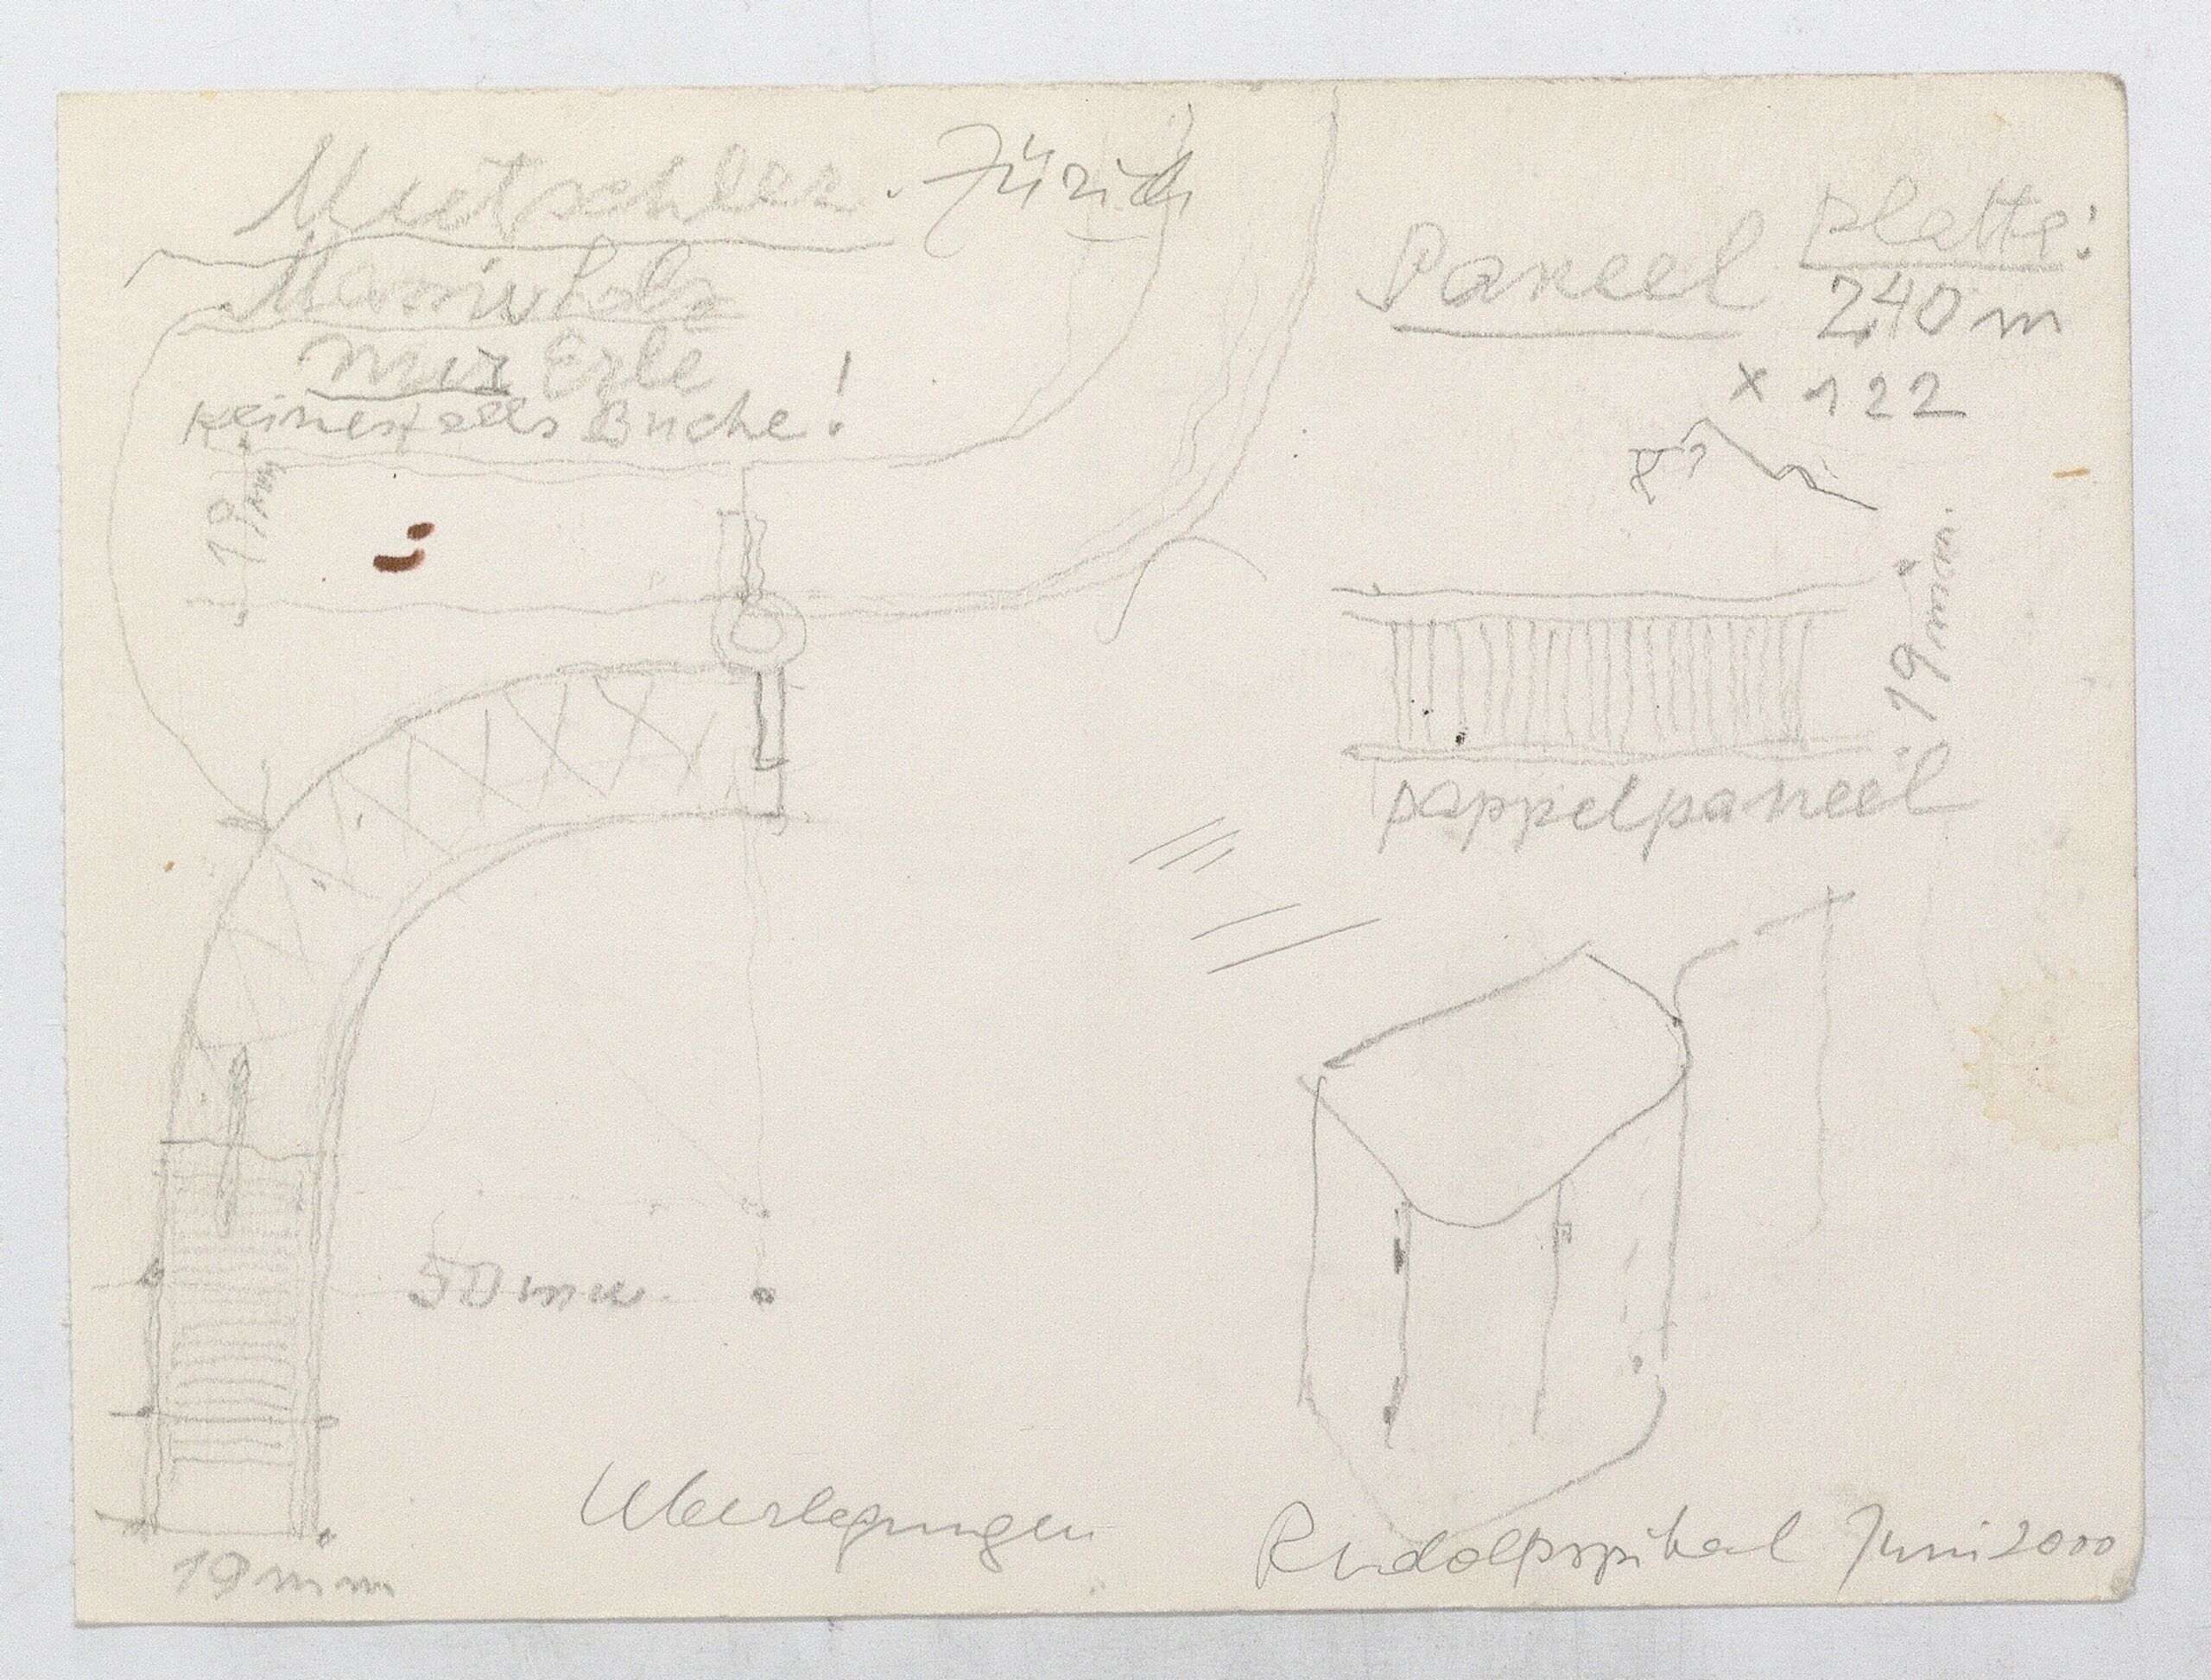 Mutschler. Zürich
Massivholz
nur Erle
Keinesfalls Buche!
19mm
Paneel Platte:
2,40 m
x 122
19 mm.
Pappelpaneel
50 mm.
19 mm
Überlegungen
Rudolfspital Juni 2000